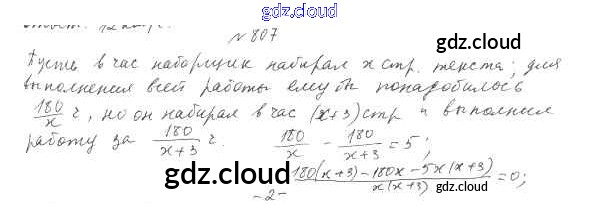 gdz.cloud
№ 807
gdz.cloud
Пусть в час наборщик набирал x стр. текста; для
выполнения всей работы ему бы понадобилось
180/x ч, но он набирал в час (x+3) стр и выполнил
работу за 180/(x+3) ч. 180/x - 180/(x+3) = 5;
gdz.cloud
(180(x+3)-180x-5x(x+3))/(x(x+3)) = 0;
gdz.cloud
-2-
gdz.cloud